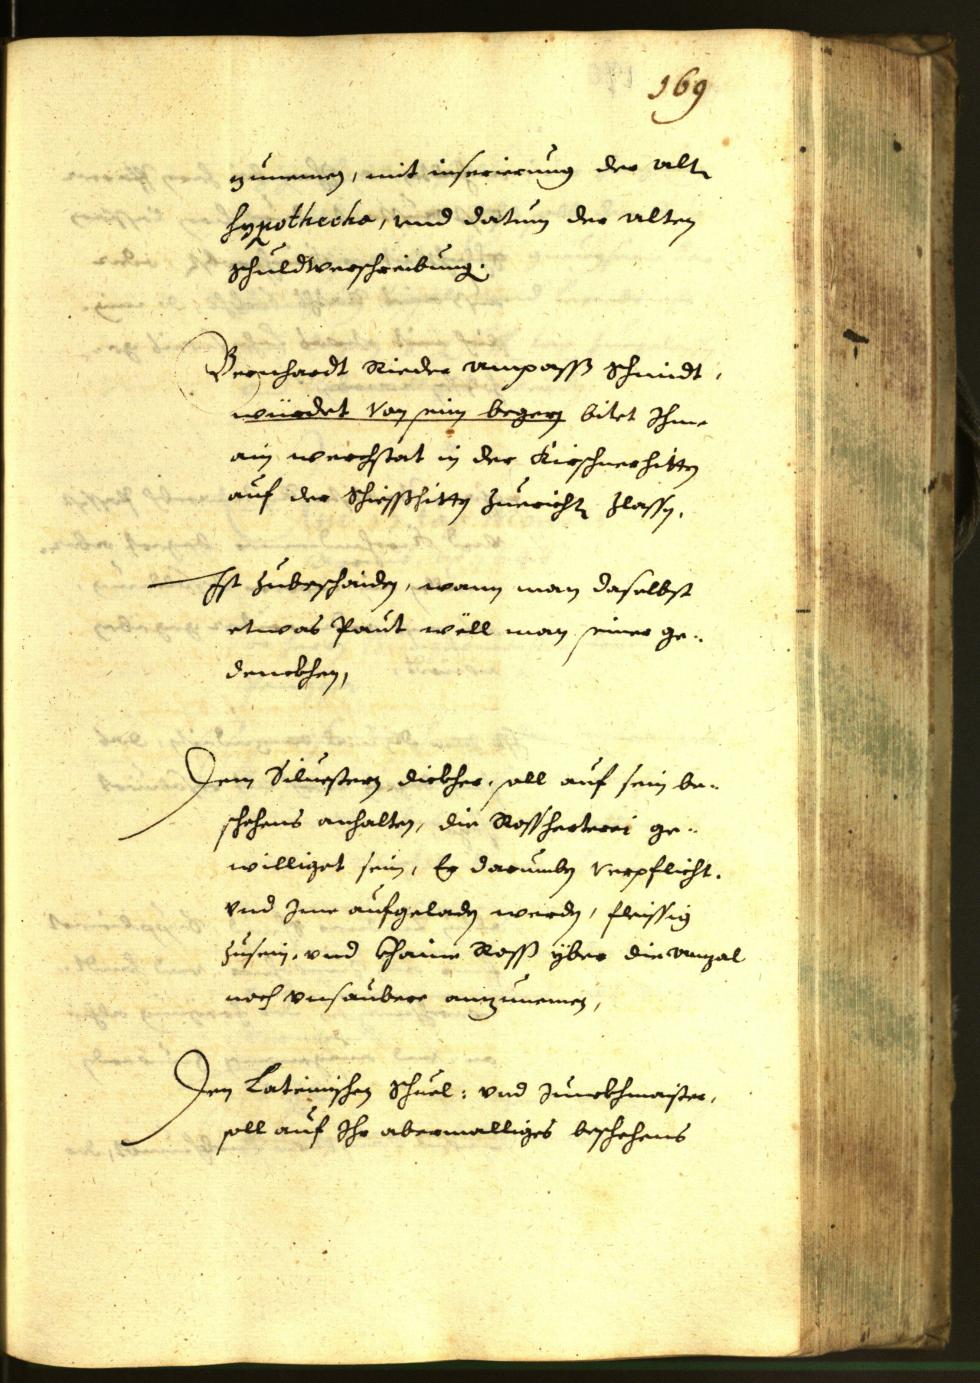 169
zunemen, mit inserierung der alt
hypothecha, und datum der alten
schuldtverschreibung.
Bernhardt Rieder ampass Schmidt,
würdet von seim begern bitet Ihme
ain werchstat in der Kirschnerhitten
auf der Schiesshitten zuericht zlassn.
Ist zubeschaiden, wann man daselbst
etwas Paut well man seiner ge-
denckhen,
Dem Siluestern dickher, soll auf sein be-
schehens anhalten, die Rossherterei ge-
williget sein, Er darumben verpflicht.
vnd Ime aufgeladen werden, fleissig
zusein, vnd khaine Ross yber die anzal
noch vnsaubere anzunemen,
Den Lateinischen Schuel: vnd Junckhmaister,
soll auf Ihr abermalliges beschehens